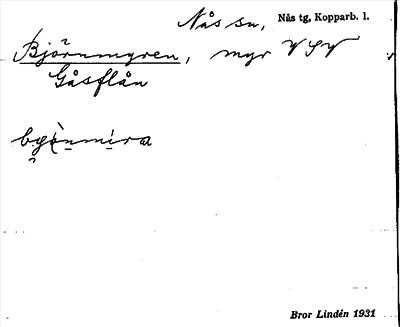 Nås sn, Nås tg, Kopparb. l.
Björnmyren, myr VSV
Gåsflån
Bror Lindén 1931